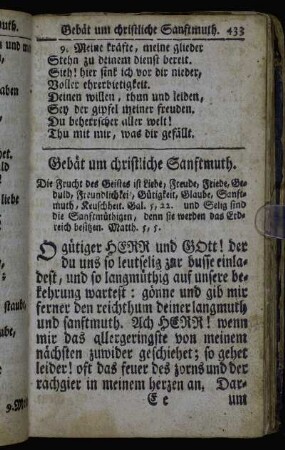 Gebät um christliche Sanftmuth. 433
9. Meine kräfte, meine glieder
Stehn zu deinem dienst bereit.
Sieh! hier sink ich vor dir nieder,
Voller ehrerbietigkeit.
Deinen willen, thun und leiden,
Sey der gipfel meiner freuden.
Du beherrscher aller welt!
Thu mit mir, was dir gefällt.
Gebät um christliche Sanftmuth.
Die Frucht des Geistes ist Liebe, Freude, Friede, Ge-
duld, Freundlichkeit, Gütigkeit, Glaube, Sanft-
muth, Keuschheit. Gal. 5, 22. und Selig sind
die Sanftmüthigen, denn sie werden das Erd-
reich besitzen. Matth. 5, 5.
O gütiger HERR und GOtt! der
du uns so leutselig zur busse einla-
dest, und so langmüthig auf unsere be-
kehrung wartest: gönne und gib mir
ferner den reichthum deiner langmuth
und sanftmuth. Ach HERR! wenn
mir das allergeringste von meinem
nächsten zuwider geschiehet; so gehet
leider! oft das feuer des zorns und der
rachgier in meinem herzen an. Dar-
E e um